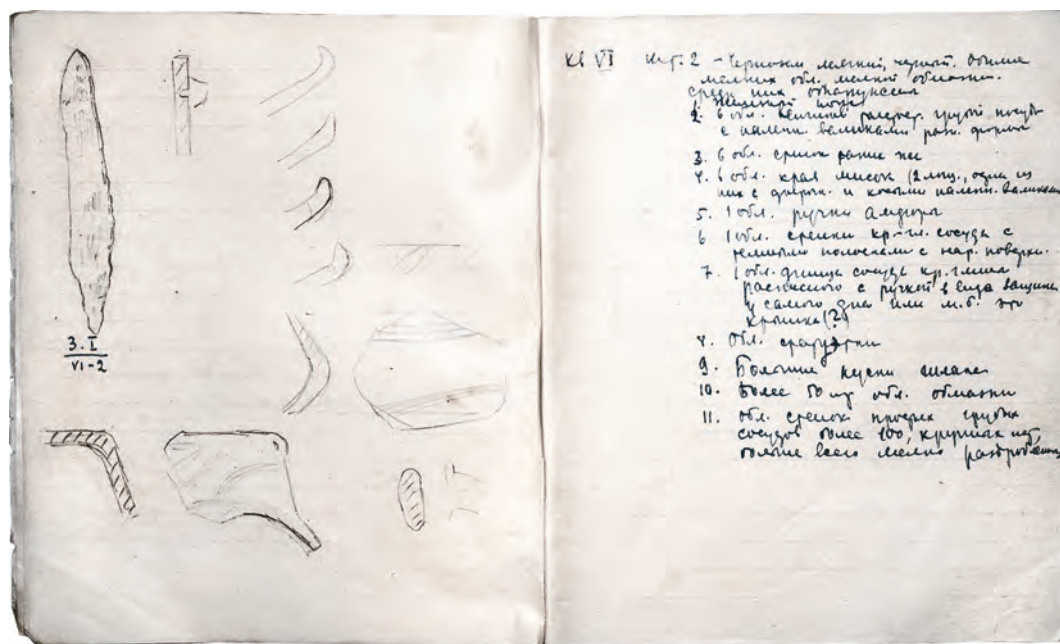 3.I
VI-2
Кв VI Шт. 2 - Чернозем мягкий, черный. Обилие
мелких обл. мелкой обмазки.
среди них
1.
2. 6 обл. венчиков грубой посуды
с налепн. валиками разн. формы
3. 6 обл. стенок
4. 6 обл. края мисок (2 лощ., одна из
них с и косыми налепн. валиками
5. 1 обл. ручки амфоры
6 1 обл. стенки кр-гл. сосуда с
полосками с нар. поверхн.
7. 1 обл. днища сосуда кр. глиня
расписного с ручкой в виде
у самого дна или м.б. это
крышка (?)
8. Обл.
9. Большие куски шлака
10. Более 50 шт обл. обмазки
11. Обл. стенок простых грубых
сосудов более 100, крупных нет,
больше всего мелко